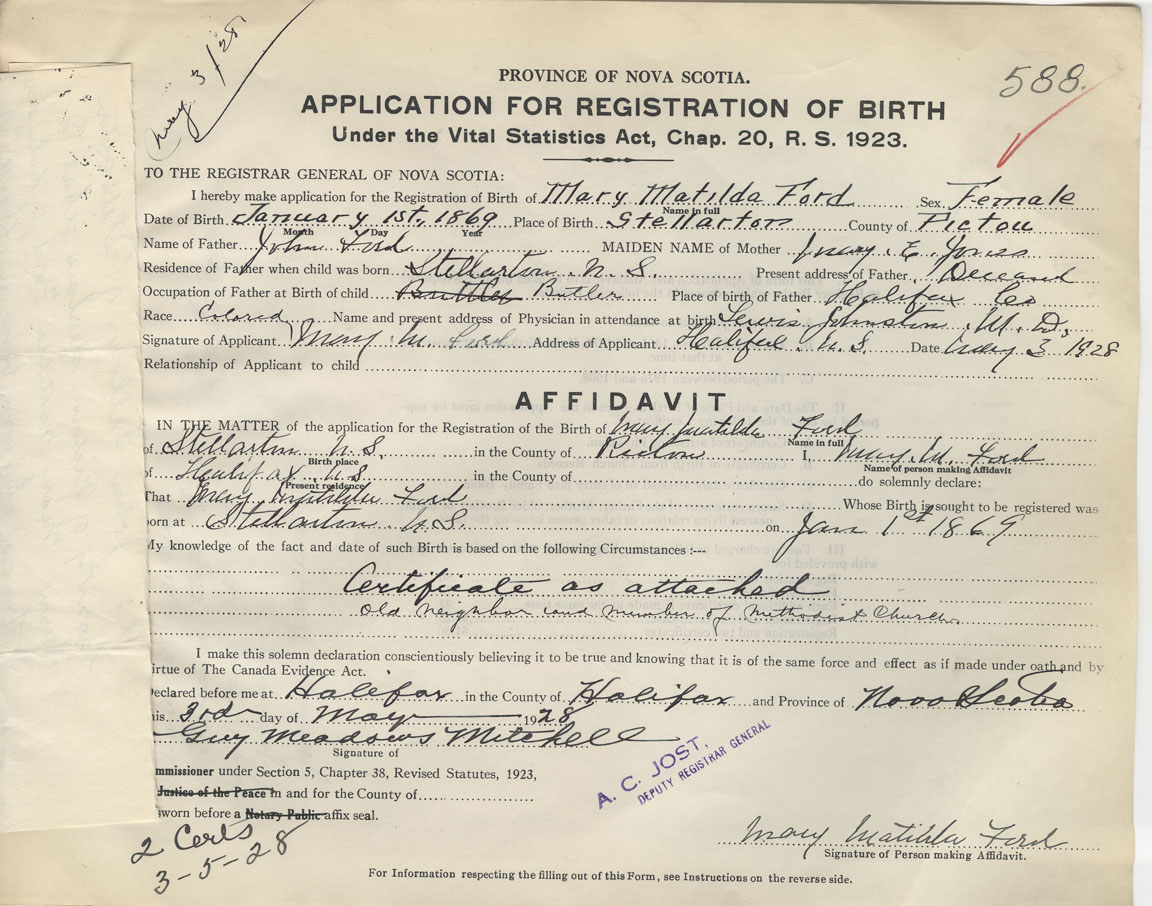 May 3/28
588.
PROVINCE OF NOVA SCOTIA.
APPLICATION FOR REGISTRATION OF BIRTH
Under the Vital Statistics Act, Chap. 20, R. S. 1923.
TO THE REGISTRAR GENERAL OF NOVA SCOTIA:
I hereby make application for the Registration of Birth of Mary Matilda Ford Sex Female
Name in full
Date of Birth January 1st, 1869 Place of Birth Stellarton County of Pictou
Month Day Year
Name of Father John Ford MAIDEN NAME of Mother Mary E. Jones
Residence of Father when child was born Stellarton N.S. Present address of Father Deceased
Occupation of Father at Birth of child Buttler Butler Place of birth of Father Halifax Co
Race Colored Name and present address of Physician in attendance at birth Lewis Johnston M.D.
Signature of Applicant Mary M. Ford Address of Applicant Halifax N.S. Date May 3 1928
Relationship of Applicant to child
AFFIDAVIT
IN THE MATTER of the application for the Registration of the Birth of Mary Matilda Ford
Name in full
of Stellarton N.S. in the County of Pictou I, Mary M. Ford
Birth place Name of person making Affidavit
of Halifax N.S in the County of do solemnly declare:
Present residence
That Mary Matilda Ford Whose Birth is sought to be registered was
orn at Stellarton N.S. on Jan 1st 1869
My knowledge of the fact and date of such Birth is based on the following Circumstances :---
Certificate as attached
Old Neighbor and Member of Methodist Church.
I make this solemn declaration conscientiously believing it to be true and knowing that it is of the same force and effect as if made under oath and by
irtue of The Canada Evidence Act.
Declared before me at Halifax in the County of Halifax and Province of Nova Scotia
his 3rd day of May 1928
Guy Meadows Mitchell
Signature of
mmissioner under Section 5, Chapter 38, Revised Statutes, 1923,
Justice of the Peace in and for the County of
sworn before a Notary Public affix seal.
A. C. JOST,
DEPUTY REGISTRAR GENERAL
2 Certs
3-5-28
Mary Matilda Ford
Signature of Person making Affidavit.
For Information respecting the filling out of this Form, see Instructions on the reverse side.